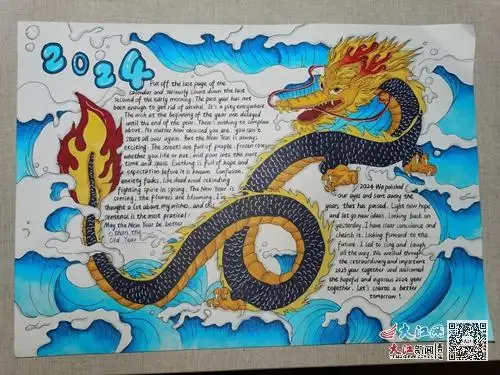 2024
Put off the last page of the
calendar and seriously count down the last
second of the early morning. The past year has not
been enough to get rid of alcohol. It's a pity everywhere
The wish at the beginning of the year was delayed
until the end of the year. Then nothing to complain
about. No matter how obsessed you are, you can't
start all over again. But the New Year is always
exciting. The streets are full of people, frozen
whether you life or not, will pour into the next
time and space. Everything is full of hope and
expectation before it is known. Confusion,
anxiety fades, the dead wood rekindling
fighting spirit in spring. The New Year is
coming, the flowers are blooming. I've
thought a lot about my wishes, and
sentence is the most practical:
May the New Year be better
than the
Old Year
2024 We polished
our eyes and sent away the
years that has passed. Light new hope
and let go new ideas. Looking back on
yesterday, I have clear conscience and
cherish it. Looking forward to the
future. I led to sing and laugh
all the way. We walked through
the extraordinary and important
2023 year together and welcomed
the hopeful and vigorous 2024 year
together. Let's create a better
tomorrow!
大江网
大江新闻